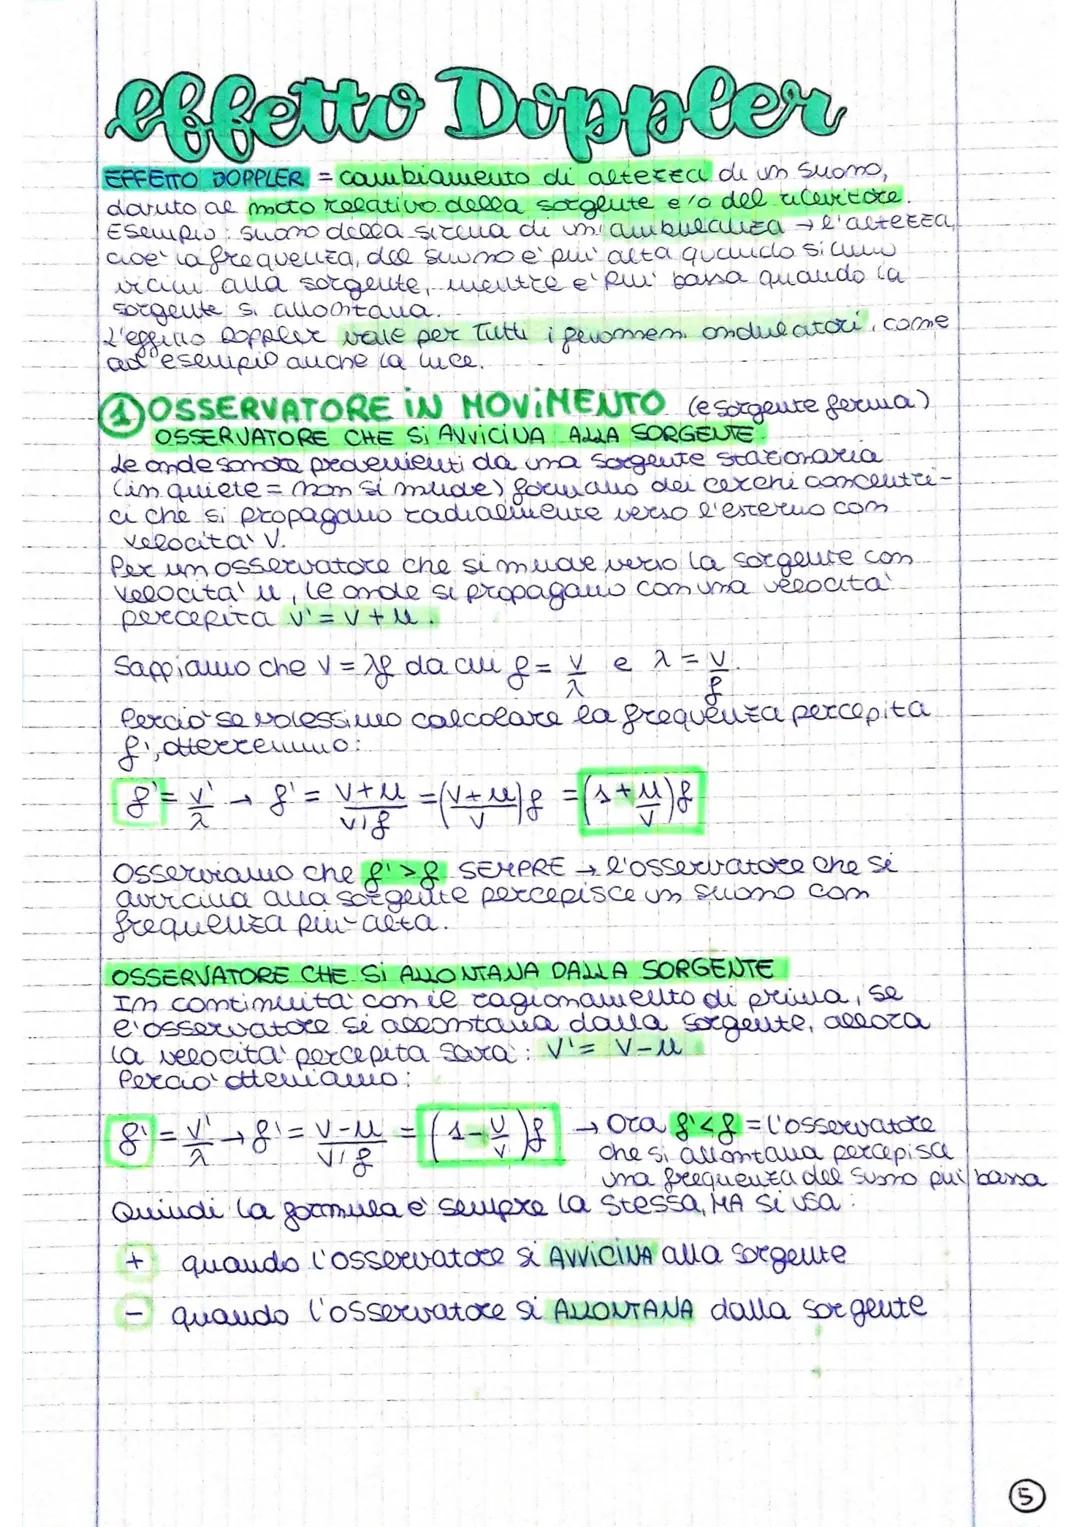 effetto Doppler
EFFETTO DOPPLER = cambiamento di altezza di un suono,
dovuto al moto relativo della sorgente e/o del ricevitore.
Esempio: suono della sirena di un'ambulanza → l'altezza,
cioè la frequenza, del suono è più alta quando siamo
vicini alla sorgente, mentre è più bassa quando la
sorgente si allontana.
L'effetto Doppler vale per tutti i fenomeni ondulatori, come
ad esempio anche la luce.
1 OSSERVATORE IN MOVIMENTO (e sorgente ferma)
OSSERVATORE CHE SI AVVICINA ALLA SORGENTE
Le onde sonore provenienti da una sorgente stazionaria
(in quiete = non si muove) formano dei cerchi concentri-
ci che si propagano radialmente verso l'esterno con
velocità v.
Per un osservatore che si muove verso la sorgente con
velocità u, le onde si propagano con una velocità
percepita v' = v + u.
Sappiamo che v = λf da cui f = v/λ e λ = v/f.
Perciò se volessimo calcolare la frequenza percepita
f', otterremmo:
f' = v'/λ → f' = (v+u)/(v/f) = ((v+u)/v)f = (1 + u/v)f
Osserviamo che f' > f SEMPRE → l'osservatore che si
avvicina alla sorgente percepisce un suono con
frequenza più alta.
OSSERVATORE CHE SI ALLONTANA DALLA SORGENTE
In continuità con il ragionamento di prima, se
l'osservatore si allontana dalla sorgente, allora
la velocità percepita sarà: v' = v - u
Perciò otteniamo:
f' = v'/λ → f' = (v-u)/(v/f) = (1 - u/v)f → Ora f' < f = l'osservatore
che si allontana percepisce
una frequenza del suono più bassa
Quindi la formula è sempre la stessa, MA si usa:
+ quando l'osservatore si AVVICINA alla sorgente
- quando l'osservatore si ALLONTANA dalla sorgente
5